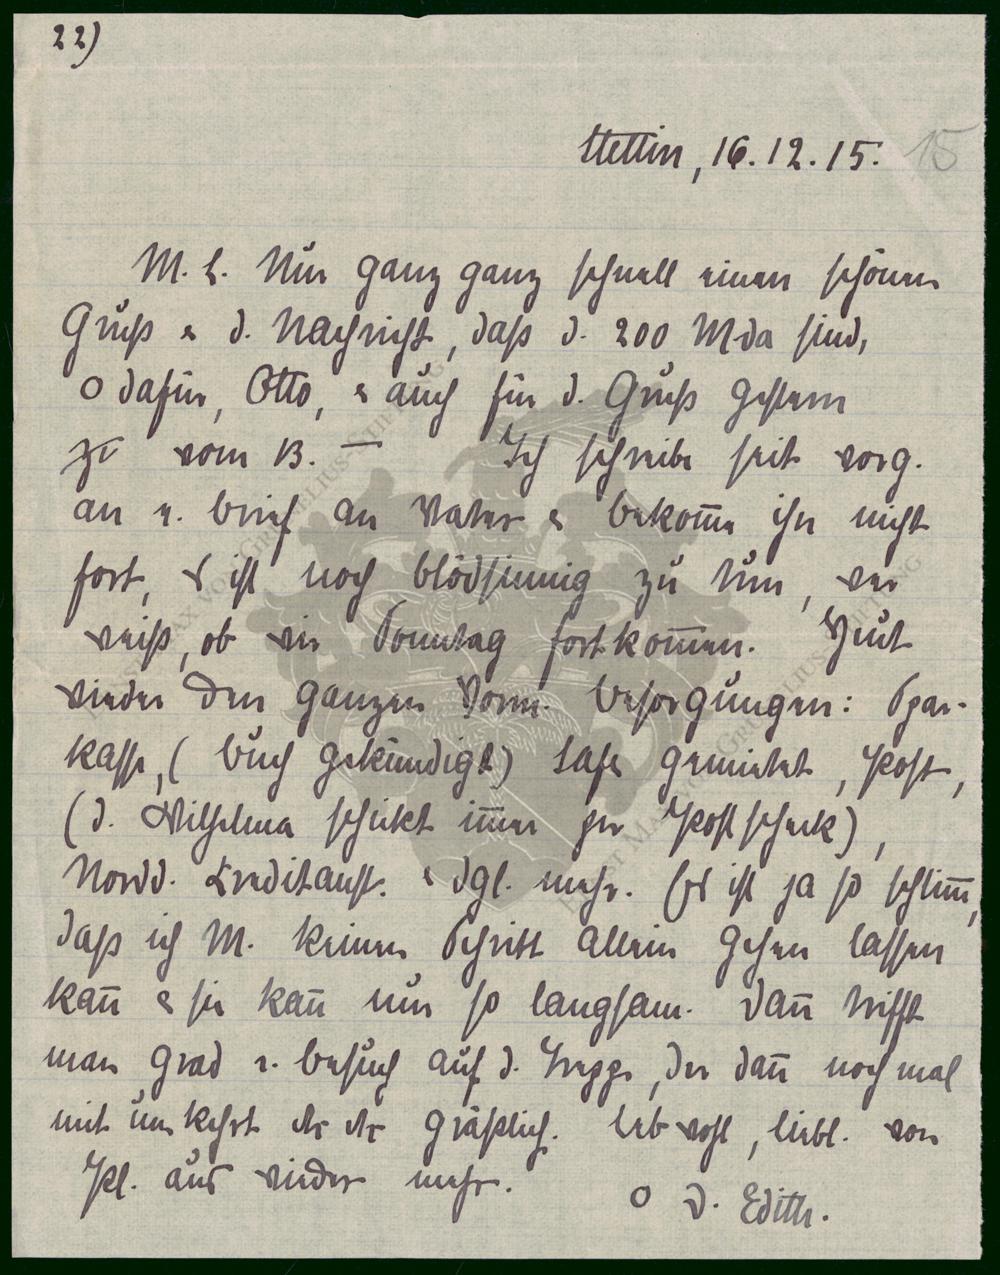 22)
Stettin, 16.12.15. 15
M. L. Nur ganz ganz schnell einen schönen
Gruß & d. Nachricht, daß d. 200 M da sind,
o dafür, Otto, & auch für d. Gruß gestern
vom 13. — Ich schreibe seit vorg.
an e. Brief an Vater & bekom̅e ihn nicht
fort, es ist noch blödsinnig zu tun, wer
weiß, ob wir Sonntag fortkom̅en. Heut
wieder den ganzen Vorm. Besorgungen: Spar-
kasse, (Buch gekündigt) Safe gemietet, Post,
(d. Wilhelma schickt im̅er per Postscheck),
Nordd. Kreditanst. & dgl. mehr. Es ist ja so schlim̅,
daß ich M. keinen Schritt allein gehen lassen
kan̅ & sie kan̅ nur so langsam. Dan̅ trifft
man grad e. Besuch auf d. Treppe, der dan̅ noch mal
mit umkehrt etc etc gräßlich. Leb wohl, liebl. von
Pl. aus wieder mehr.
o D. Edith.